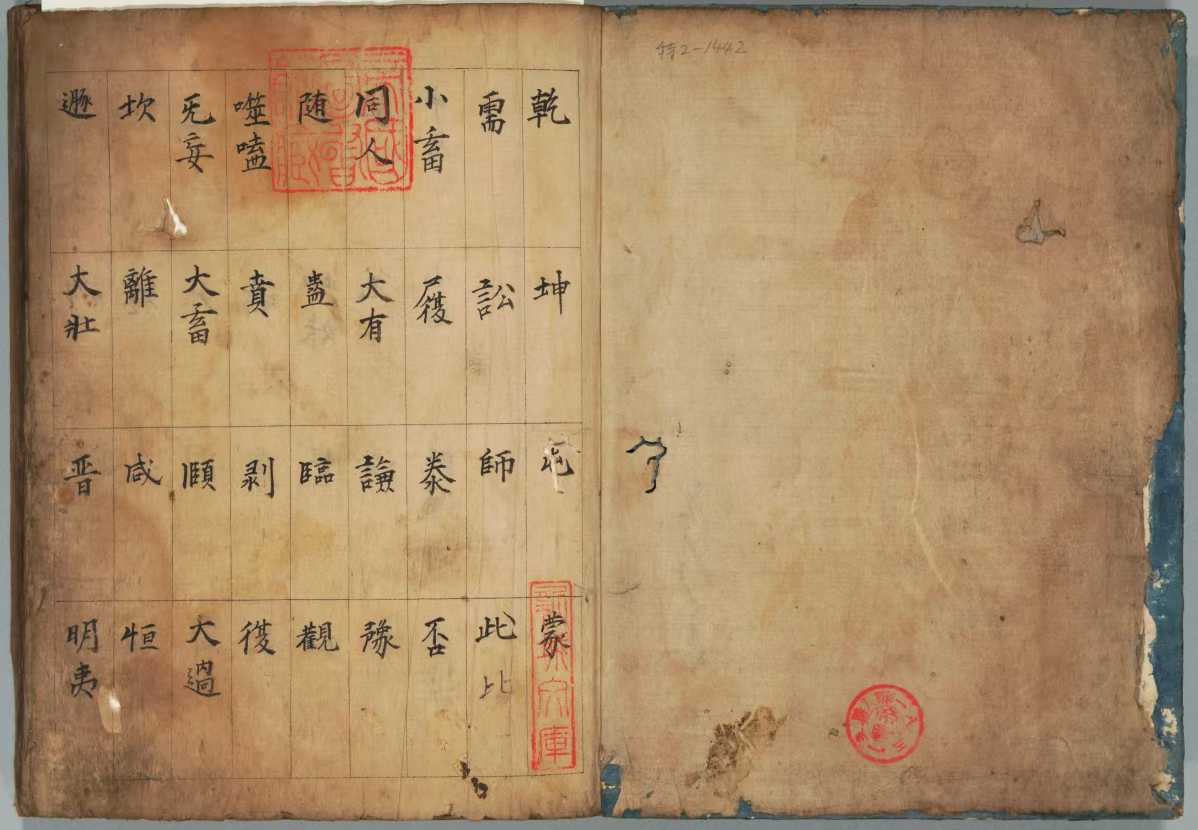 特2-1442
乾 坤 屯 蒙
需 訟 師 此 比
小畜 履 泰 否
同人 大有 謙 豫
随 蠱 臨 觀
噬嗑 賁 剥 復
无妄 大畜 頤 大過
坎 離 咸 恒
遯 大壯 晋 明夷
文庫